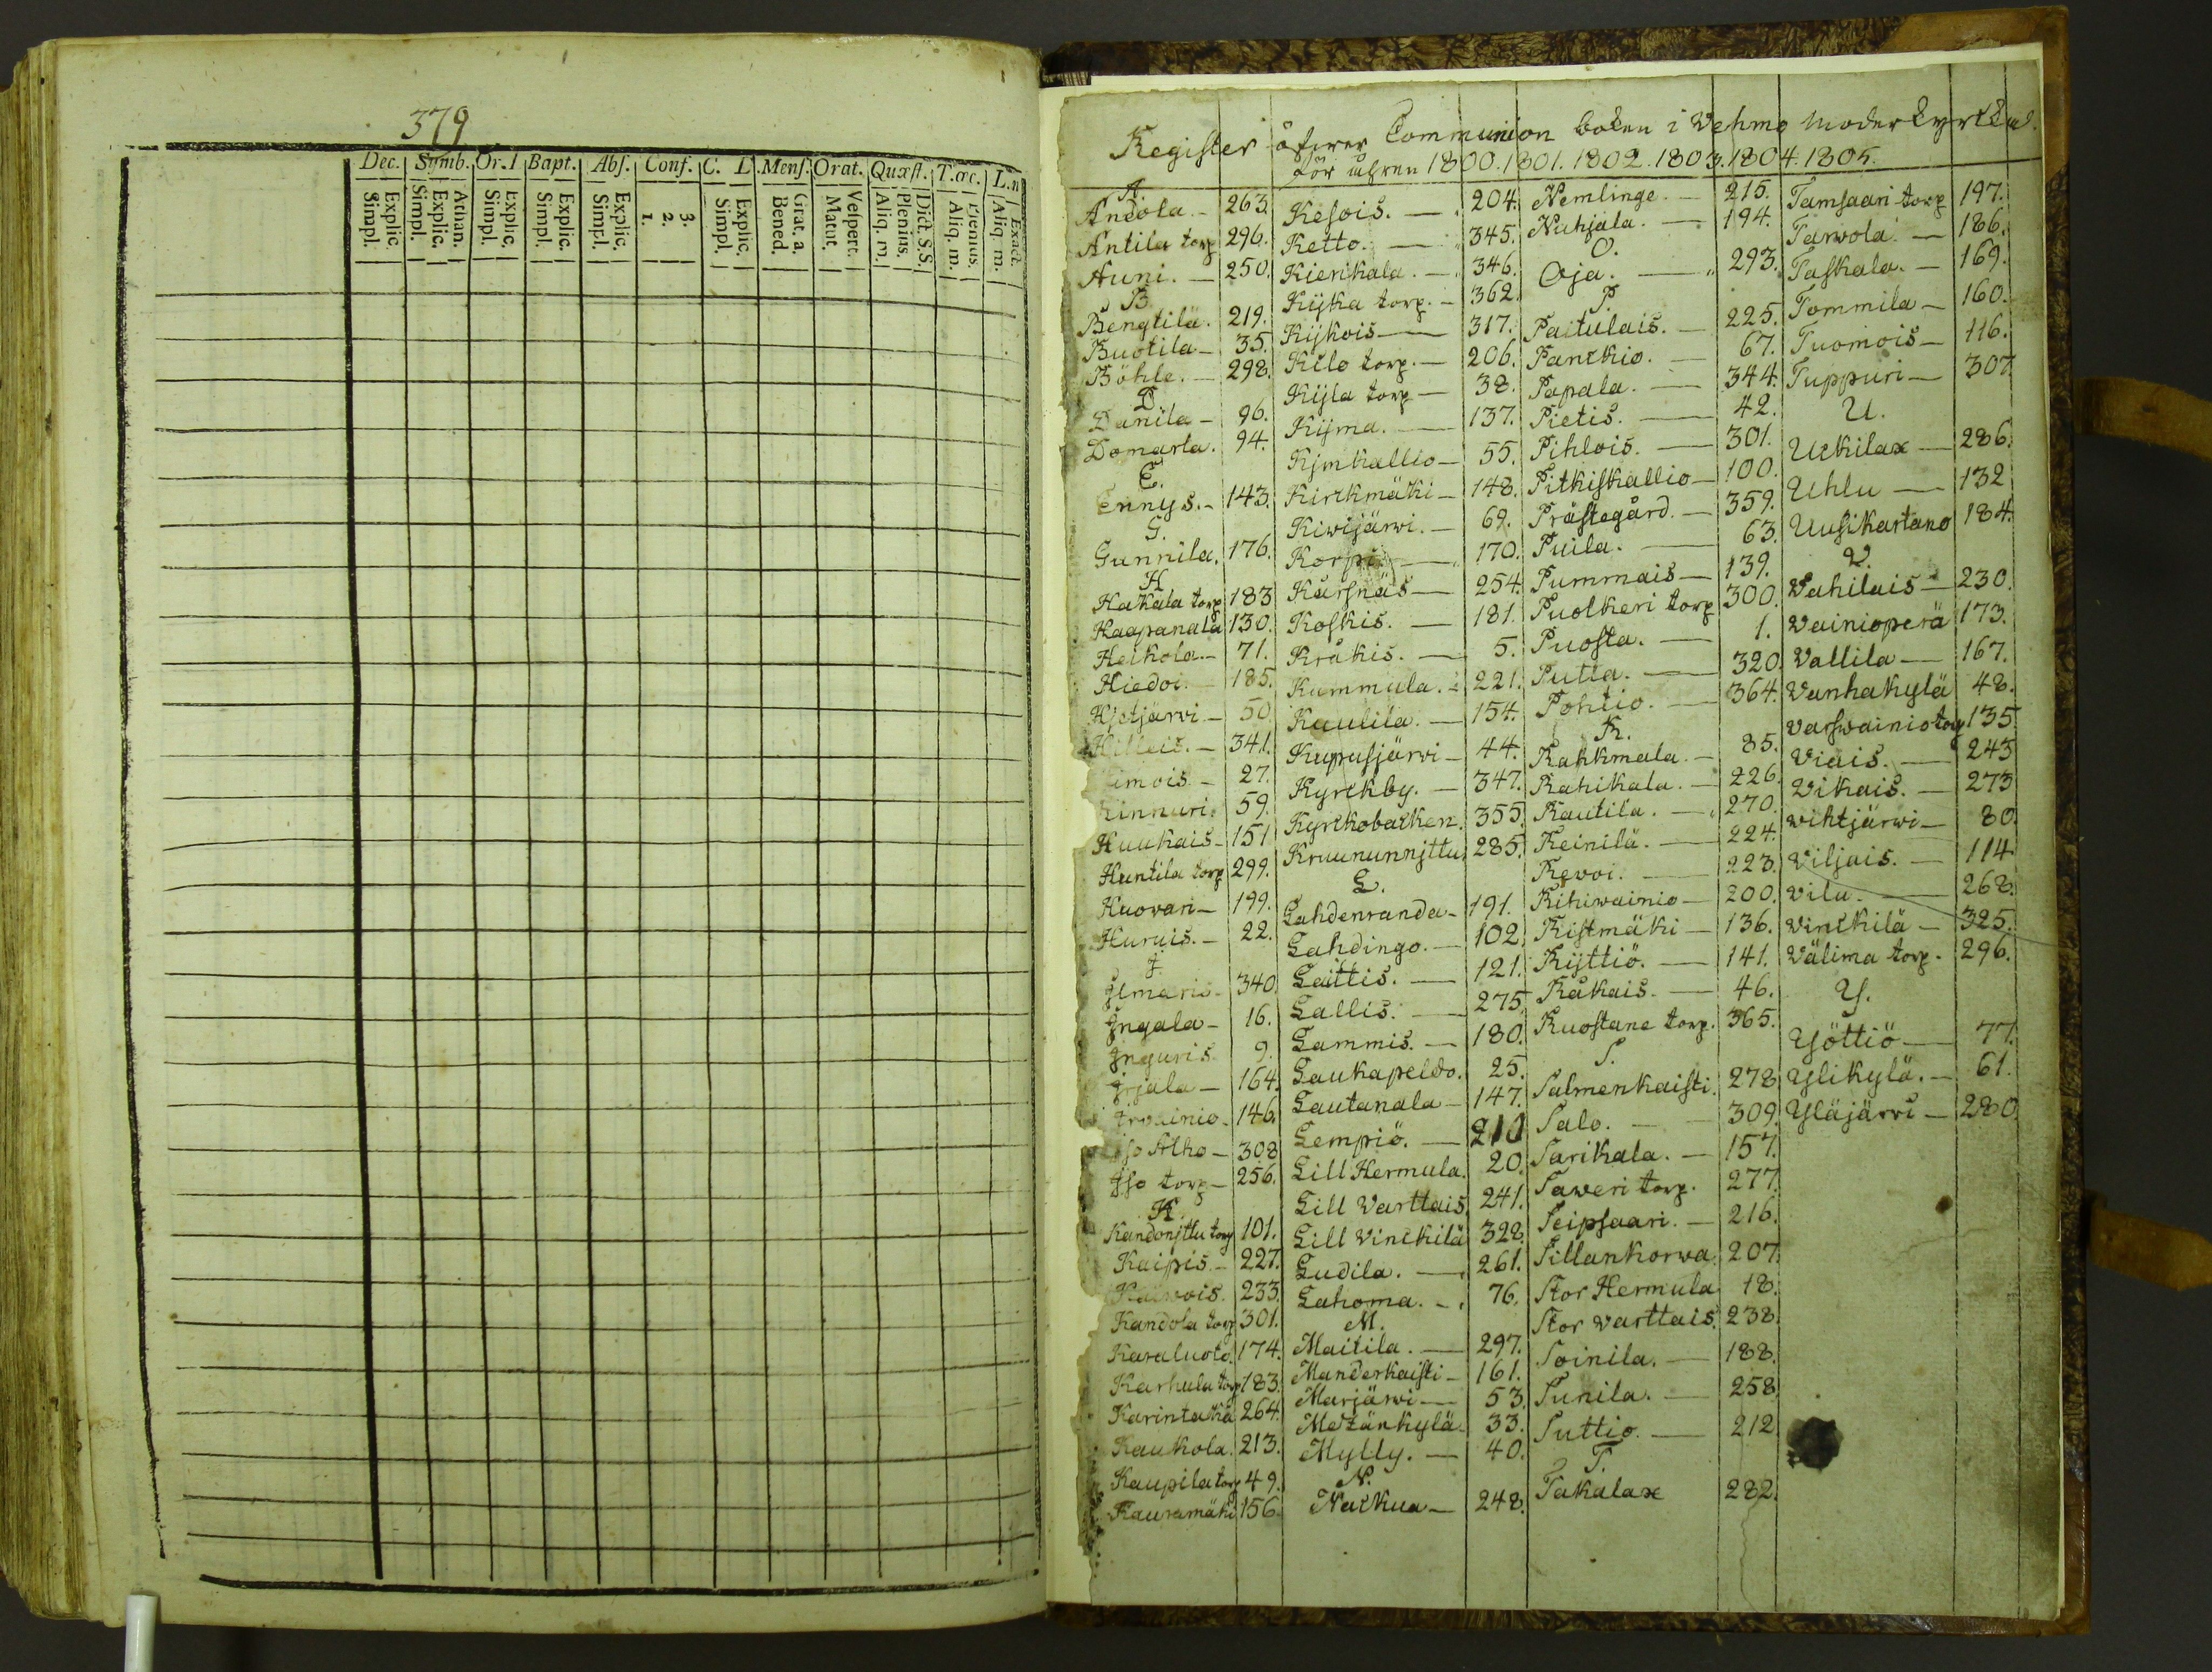 379
Dec. Symb. Or. I Bapt. Abs. Conf. C. L. Mens. Orat. Quæst. T. œc. L.n
Explic. Simpl.
Athan. Explic. Simpl.
Explic. Simpl.
Explic. Simpl.
Explic. Simpl.
3. 2. 1.
Explic. Simpl.
Grat. a. Bened.
Vespert. Matut.
Dict. S.S. Plenius. Aliq. m.
Plenius. Aliq. m.
Exact. Aliq. m.
Register öfwer Communion boken i Vehmo Moder kyrkia
för åhren 1800. 1801. 1802. 1803. 1804. 1805.
A.
Andola - 263.
Antila torp 296.
Auni. - 250.
B.
Bengtilä. 219.
Buotila - 35.
Böhle. - 298.
D
Danila - 96.
Domarla. 94.
E.
Ennys. - 143.
G.
Gunnila. 176.
H
Hakala torp 183
Haapanala 130.
Heikola. - 71.
Hiedoi. 185.
Hjetjärvi - 50.
Hilleis. - 341.
Himois - 27.
Hinnuri. 59.
Huukais - 151
Huntila torp 299.
Huovari - 199.
Huruis. - 22.
J.
Jlmaris - 340.
Jngala - 16.
Jnguris 9.
Jrjala - 164.
Jrvainio. 146.
Jso Alho - 308
Jso torp - 256.
K.
Kandonjttu torp 101.
Kaipis. - 227.
Kaivois. 233.
Kandola torp 301.
Karaluoto. 174.
Karhula torp 183.
Karintaka 264.
Kaukola. 213.
Kaupila torp 49.
Kauramäki 156.
Kesois. - 204.
Ketto. - 345.
Kierikala. - 346.
Kijka torp. - 362.
Kijkois - 317.
Kilo torp. - 206.
Kijla torp - 38.
Kijma. - 137.
Kjmkallio - 55.
Kirckmäki - 148.
Kiwijärwi. - 69.
Korpi - 170.
Kårsnäs - 254.
Koskis. - 181.
Kråkis. - 5.
Kummula. - 221.
Kuulila. - 154.
Kupusjärwi - 44.
Kyrckby. - 347.
Kyrckobacken. 355.
Kruununnjttu 285.
L.
Lahdenranda - 191.
Lahdingo. - 102.
Laittis. - 121.
Lallis. - 275.
Lammis. - 180.
Laukapeldo. 25.
Lautanala - 147.
Lempiö. - 210
Lill Hermula. 20.
Lill Varttais. 241.
Lill Vinckilä 328.
Ludila. - 261.
Lahoma. - 76.
M.
Maitila. - 297.
Manderkaisti - 161.
Marjärwi - 53.
Metzänkylä. 33.
Mylly. - 40.
N.
Nackua - 248.
Nemlinge. - 215.
Nuhjala. - 194.
O.
Oja. - 293.
P.
Paitulais. - 225.
Panckio. - 67.
Papala. - 344.
Pietis. - 42.
Pihlois. - 301.
Pitkiskallio - 100.
Prästegård. - 359.
Puila. - 63.
Pummais - 139.
Puolkeri torp 300.
Puosta. - 1.
Putta. - 320.
Pohtio. - 364.
R.
Rahkmala. - 85.
Rahikala. - 226.
Rautila. - 270.
Reinilä. - 224.
Revoi. - 223.
Rihiwainio - 200.
Ristmäki - 136.
Ryttiö. - 141.
Råkais. - 46.
Ruostane torp. 365.
S.
Salmenkaisti. 278
Salo. - 309.
Sarikala. - 157.
Saweri torp. 277.
Seipsaari. - 216.
Sillankorwa. 207.
Stor Hermula 18.
Stor Varttais. 238.
Soinila. - 188.
Sunila. - 258.
Suttio. - 212
T.
Takalax 282.
Tamsaari torp 197.
Tarvola - 186.
Taskala. - 169.
Tommila - 160.
Tuomois - 116.
Tuppuri - 307.
U.
Uckilax - 286.
Uhlu - 132
Uusikartano 184.
V.
Vahilais - 230.
Vainioperä 173.
Vallila - 167.
Vanhakylä 48.
Varswainio torp 135.
Viais. - 243
Vikais. - 273
Vihtjärwi - 80.
Viljais. - 114
Vilu. - 268.
Vinckilä - 325.
Välima torp. 296.
Y.
Yöttiö - 77.
Ylikylä. - 61.
Yläjärvi - 280.